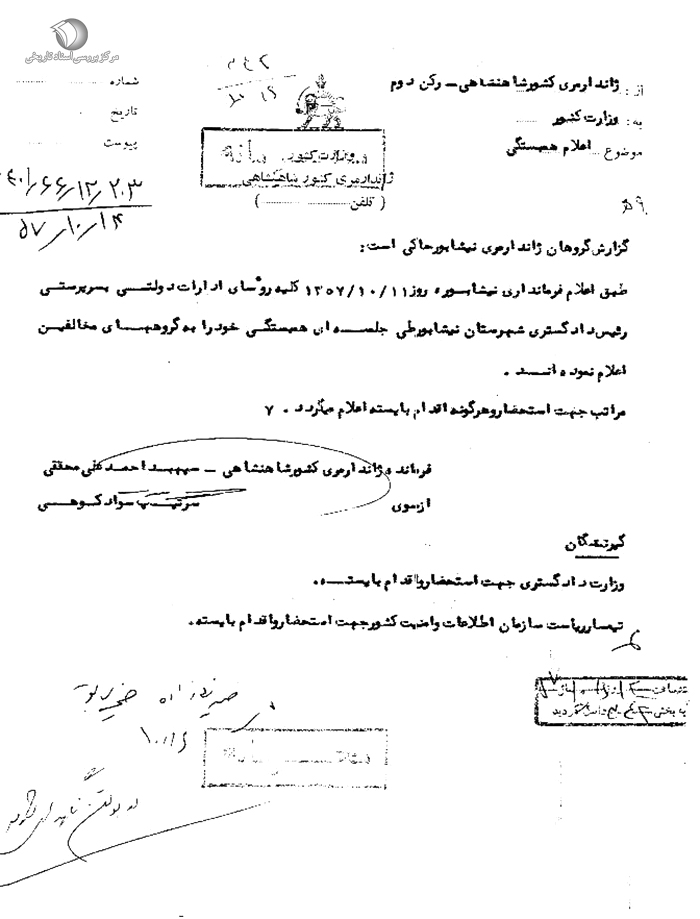 مرکز بررسی اسناد تاریخی
از: ژاندارمری کشور شاهنشاهی - رکن دوم
به: وزارت کشور
موضوع اعلام همبستگی
شماره
تاریخ
پیوست
وزارت کشور
ژاندارمری کشور شاهنشاهی
( تلفن )
۴۰۱/۶۶/۱۲/۲۰۳
۵۷/۱۰/۱۴
گزارش گروهان ژاندارمری نیشابور حاکی است:
طبق اعلام فرمانداری نیشابور روز ۱۳۵۷/۱۰/۱۱ کلیه روسای ادارات دولتی بسرپرستی
رئیس دادگستری شهرستان نیشابور طی جلسه ای همبستگی خود را به گروههای مخالفین
اعلام نموده اند .
مراتب جهت استحضار و هرگونه اقدام بایسته اعلام میگردد . ۷
فرمانده ژاندارمری کشور شاهنشاهی - سپهبد احمد علی محققی
از سوی سرتیپ سواد کوهی
گیرندگان
وزارت دادگستری جهت استحضار و اقدام بایسته.
تیمسار ریاست سازمان اطلاعات و امنیت کشور جهت استحضار و اقدام بایسته.